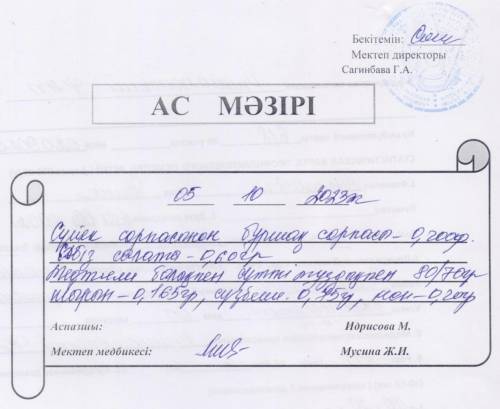 Бекітемін:
Мектеп директоры
Сагинбава Г.А.
АС МӘЗІРІ
05 10 2023ж
Сүйек сорпасынан бұршақ сорпасы - 0,200гр.
Сәбіз салаты - 0,60гр
балықпен сүтті тұздықпен 80/70гр
0,165гр, 0,75гр, нан - 0,20гр
Аспазшы: Идрисова М.
Мектеп медбикесі: Мусина Ж.И.